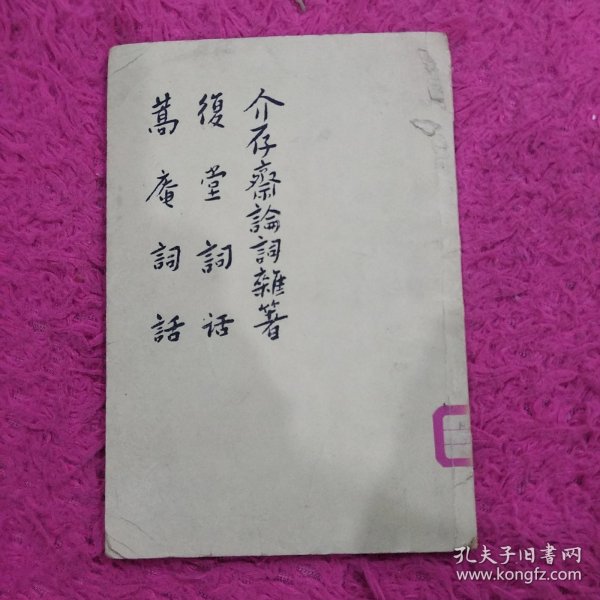 介存齋論詞雜著
復堂詞话
蒿庵詞話
孔夫子旧书网
www.kongfz.com